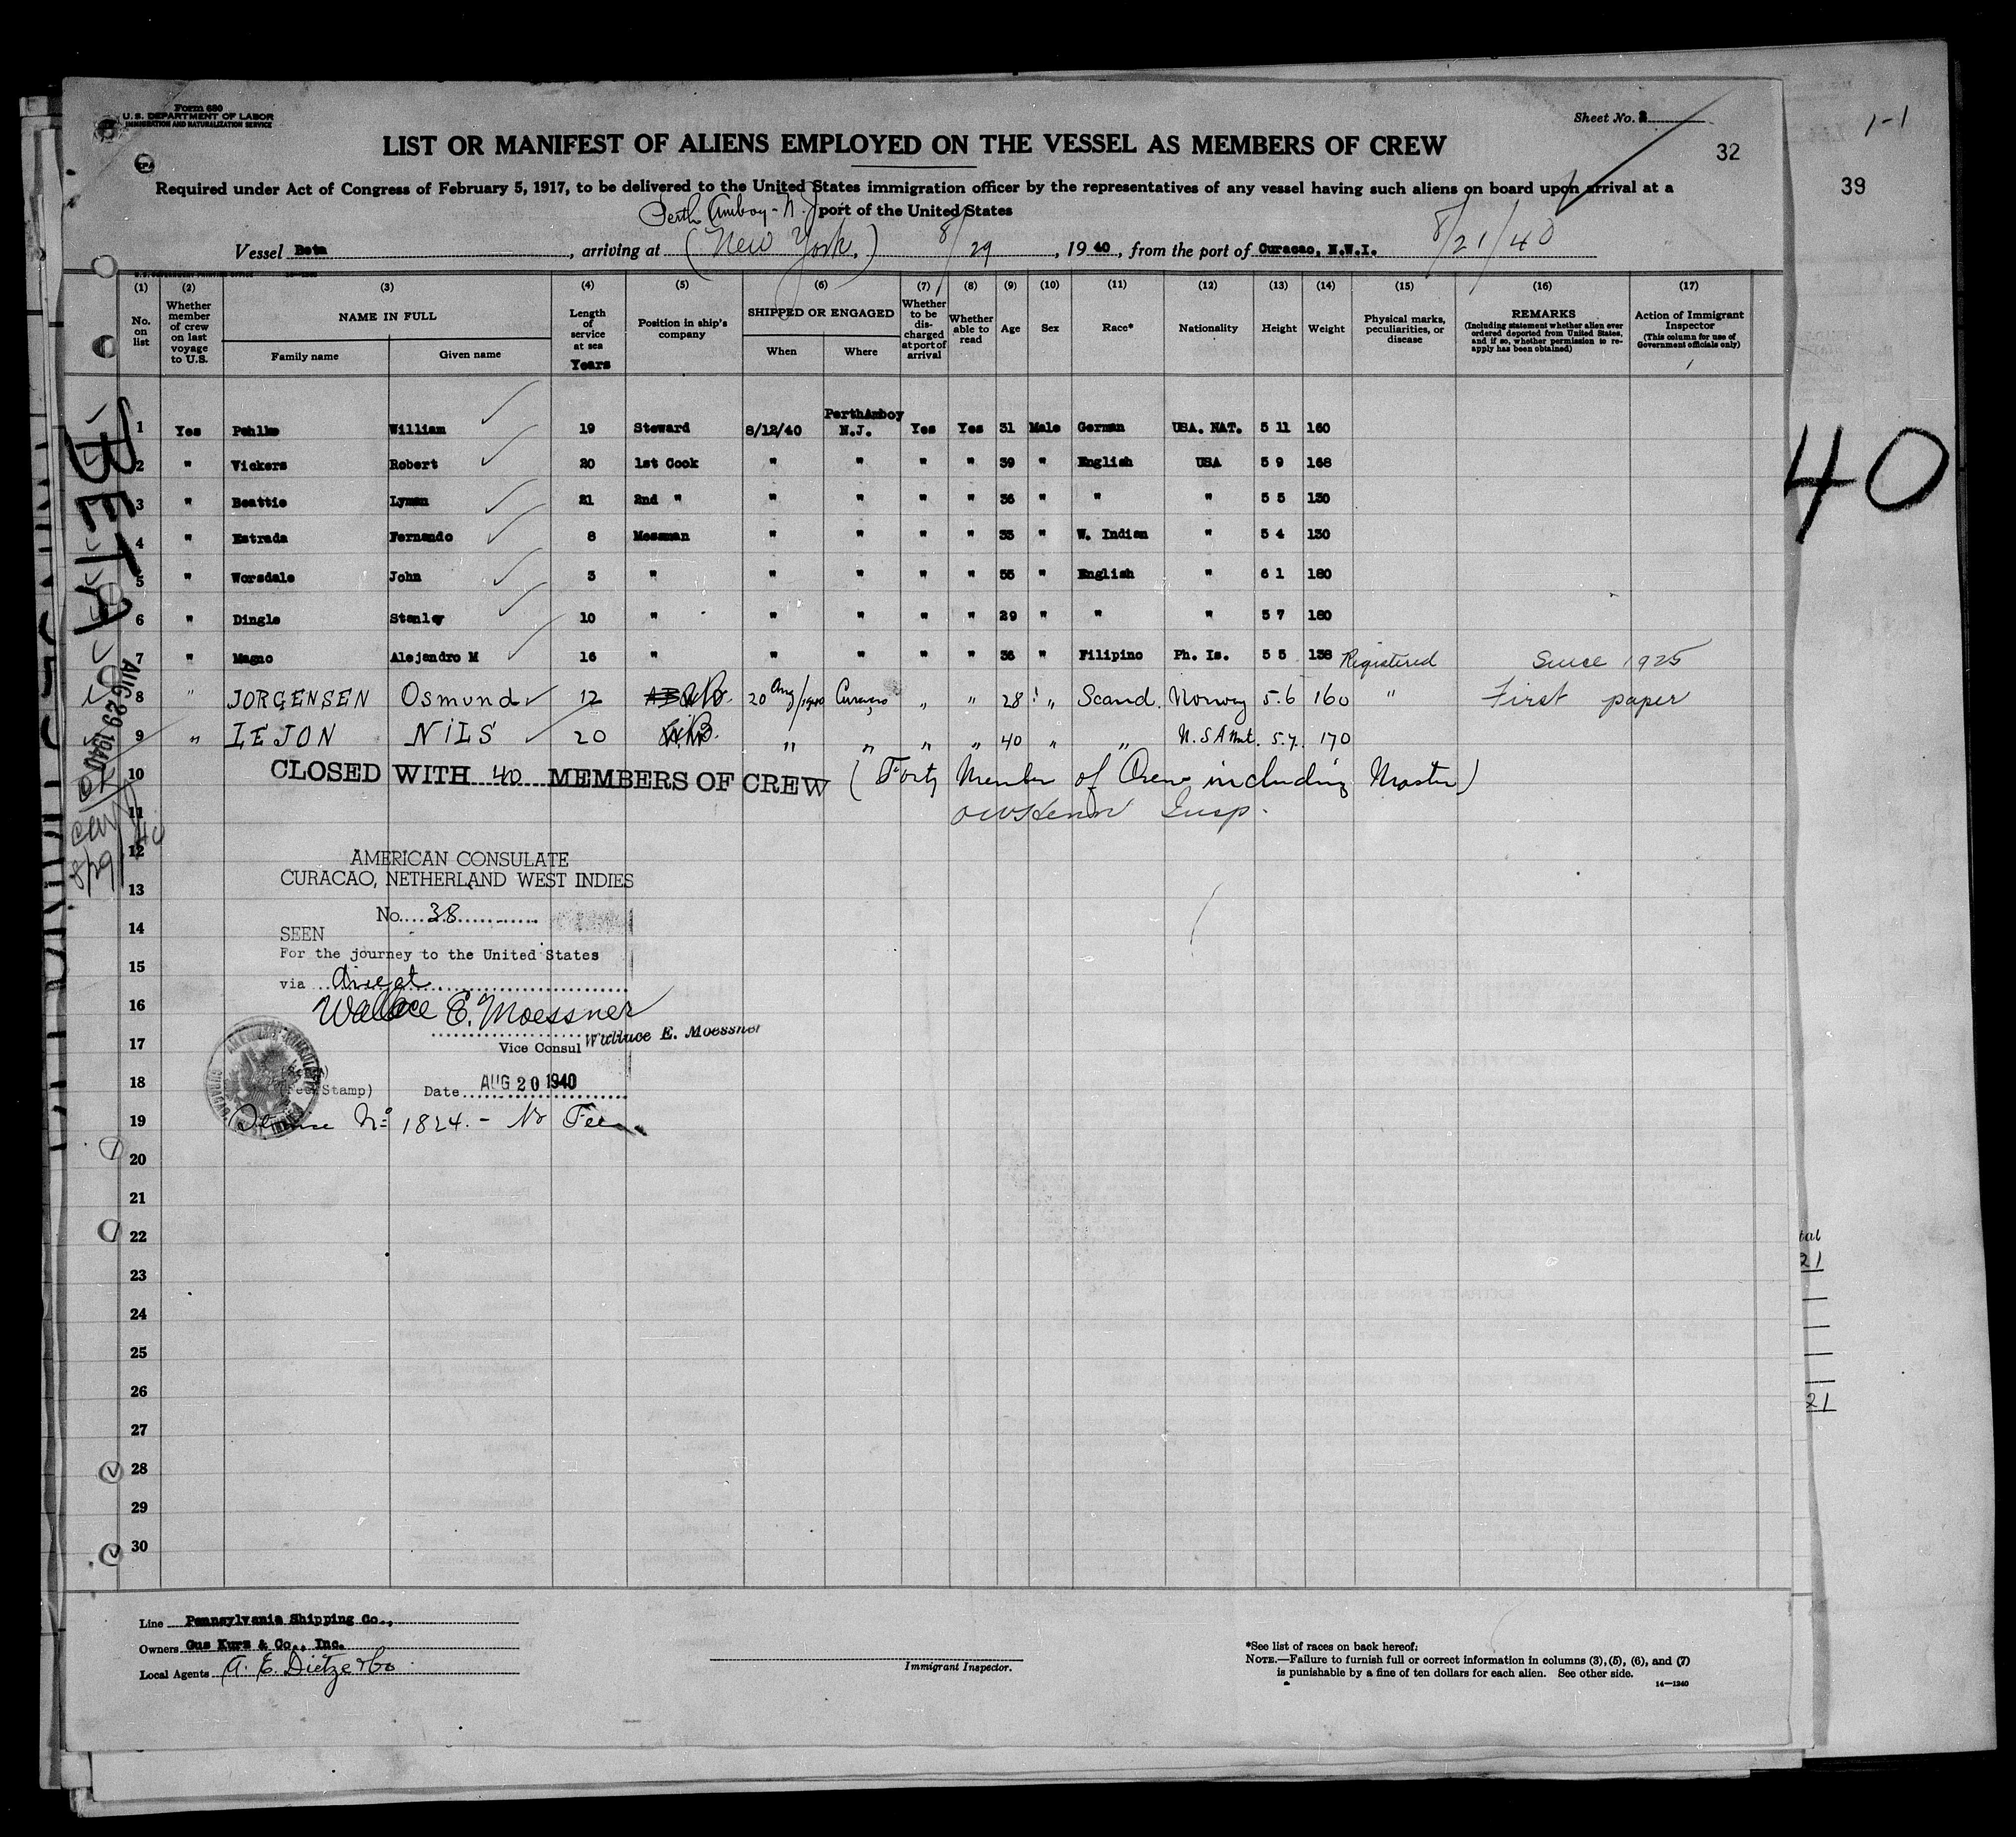 Form 680
U.S. DEPARTMENT OF LABOR
IMMIGRATION AND NATURALIZATION SERVICE
Sheet No. 2
1-1
LIST OR MANIFEST OF ALIENS EMPLOYED ON THE VESSEL AS MEMBERS OF CREW
32
39
Required under Act of Congress of February 5, 1917, to be delivered to the United States immigration officer by the representatives of any vessel having such aliens on board upon arrival at a
Perth Amboy - N.J. port of the United States
Vessel Beta, arriving at (New York,) 8/29, 1940, from the port of Curacao, N.W.I. 8/21/40
(1) (2) (3) (4) (5) (6) (7) (8) (9) (10) (11) (12) (13) (14) (15) (16) (17)
No. on list
Whether member of crew on last voyage to U.S.
NAME IN FULL
Family name Given name
Length of service at sea Years
Position in ship's company
SHIPPED OR ENGAGED
When Where
Whether to be discharged at port of arrival
Whether able to read
Age
Sex
Race*
Nationality
Height
Weight
Physical marks, peculiarities, or disease
REMARKS
(Including statement whether alien ever ordered deported from United States, and if so, whether permission to re-apply has been obtained)
Action of Immigrant Inspector
(This column for use of Government officials only)
BETA
40
1 Yes Pehlke William 19 Steward 8/12/40 PerthAmboy N.J. Yes Yes 31 Male German USA. NAT. 5 11 160
2 " Vickers Robert 20 1st Cook " " " " 39 " English USA 5 9 168
3 " Beattie Lyman 21 2nd " " " " " 36 " " " 5 5 130
4 " Estrada Fernando 8 Messman " " " " 35 " W. Indian " 5 4 130
5 " Worsdale John 3 " " " " " 55 " English " 6 1 180
6 " Dingle Stanley 10 " " " " " 29 " " " 5 7 180
7 " Magno Alejandro M 16 " " " " " 36 " Filipino Ph. Is. 5 5 138 Registered Since 1925
8 " JORGENSEN Osmund 12 20 Aug/1940 Curacao " " 28 " Scand. Norway 5.6 160 " First paper
9 " LEJON NILS 20 " " " " 40 " " 5.7. 170
AUG 29 1940
10 CLOSED WITH 40 MEMBERS OF CREW (Forty Member of Crew including Master)
11 Insp.
12
8/29/40
AMERICAN CONSULATE
CURACAO, NETHERLAND WEST INDIES
13
No. 38
14
SEEN
For the journey to the United States
15
via direct
16 Wallace E. Moessner
17 Vice Consul Wallace E. Moessner
18 (Fee Stamp) Date AUG 20 1940
19 Service No 1824. - No Fee
20
21
22
23
24
25
26
27
28
29
30
tal
21
21
Line Pennsylvania Shipping Co.,
Owners Gus Kurz & Co., Inc.
Local Agents A. E. Dietze & Co.
Immigrant Inspector.
*See list of races on back hereof.
NOTE.—Failure to furnish full or correct information in columns (3), (5), (6), and (7)
is punishable by a fine of ten dollars for each alien. See other side.
14—1240